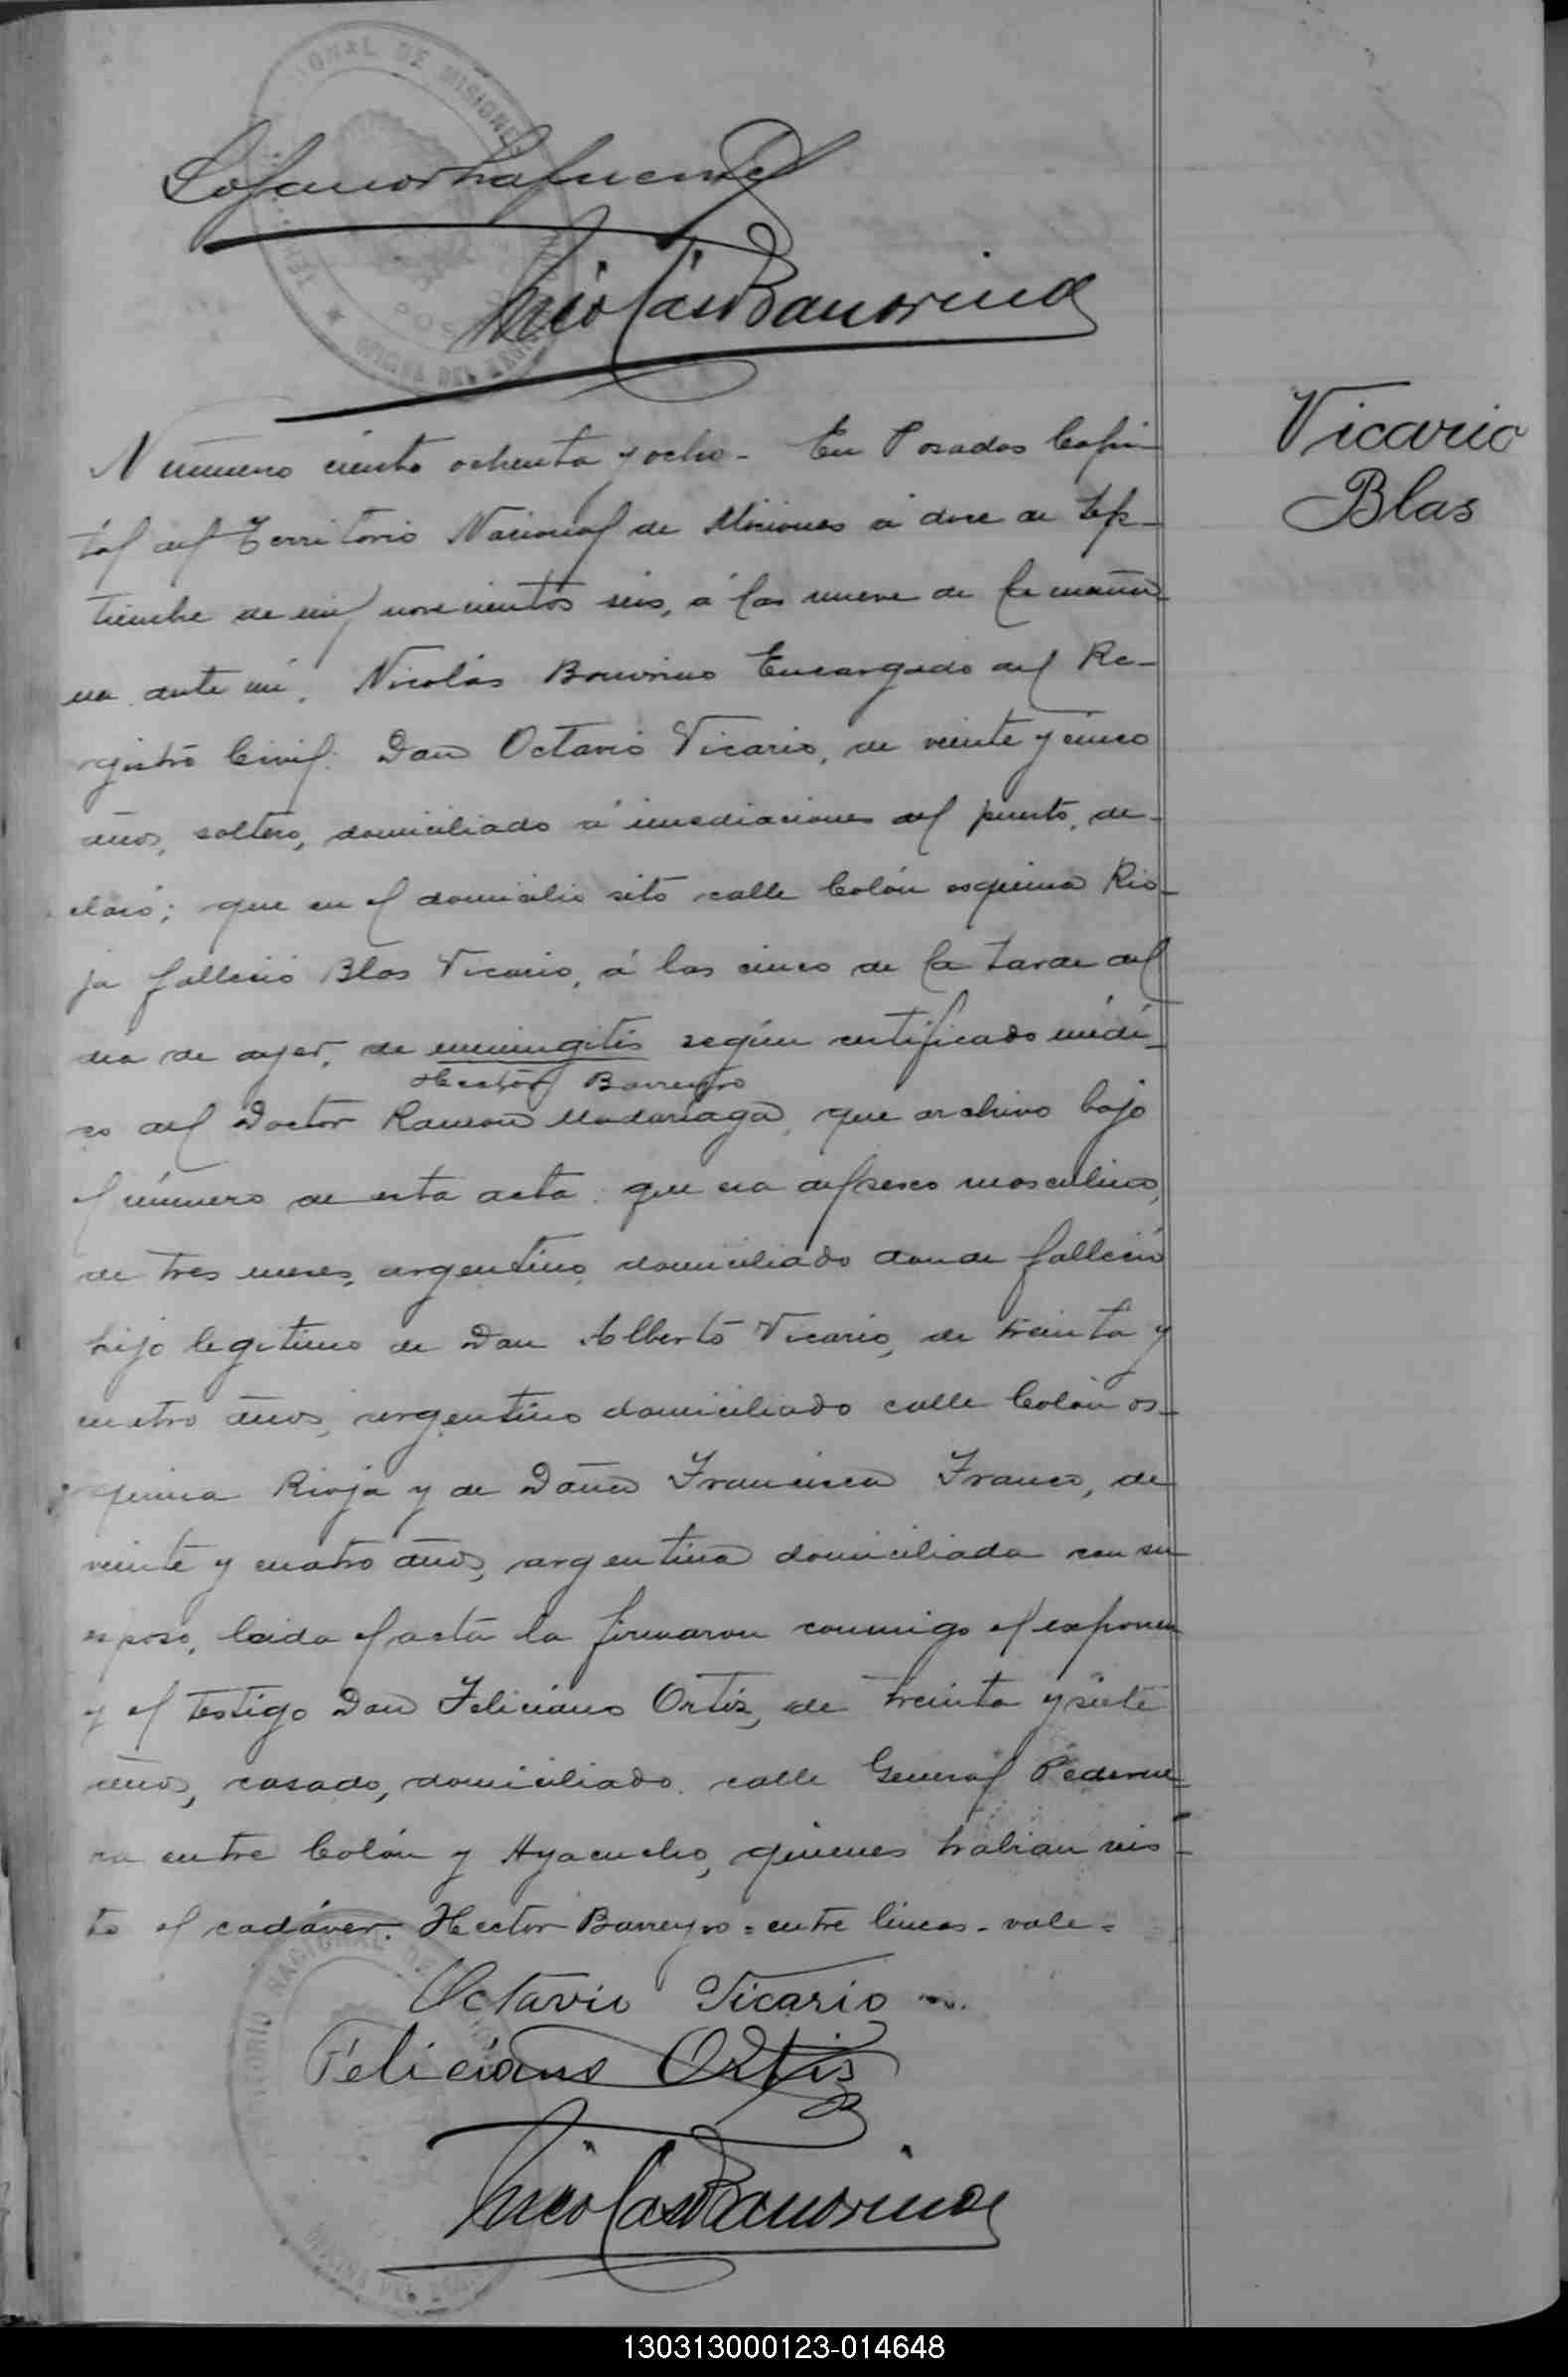 Número ciento ochenta y ocho - En Posadas Capi
tal del Territorio Nacional de Misiones á doce de Sep-
tiembre de mil novecientos seis, á las nueve de la maña-
na ante mi, Nicolás Encargado del Re-
gistro Civil: Don Octavio Vicario, de veinte y cinco
años, soltero, domiciliado á inmediaciones del puerto, de-
claró; que en el domicilio sito calle Colón esquina Rio-
ja falleció Blas Vicario, á las cinco de la tarde del
dia de ayer, de meningitis según certificado médi-
Hector Barreyro
co del Doctor Ramón Madariaga, que archivo bajo
el número de esta acta: que era del sexo masculino,
de tres meses, argentino, domiciliado donde falleció
hijo legitimo de Don Alberto Vicario, de treinta y
cuatro años, argentino domiciliado calle Colón es-
quina Rioja y de Doña Francisca Franco, de
veinte y cuatro años, argentina domiciliada con su
esposo, leida el acta la firmaron conmigo el exponen
y el testigo Don Feliciano Ortiz, de treinta y siete
años, casado, domiciliado calle General Pederne
ra entre Colón y Ayacucho, quienes habian vis-
to el cadáver. Hector Barreyro = entre lineas - vale =
Octavio Vicario
Feliciano Ortis
Vicario
Blas
130313000123-014648